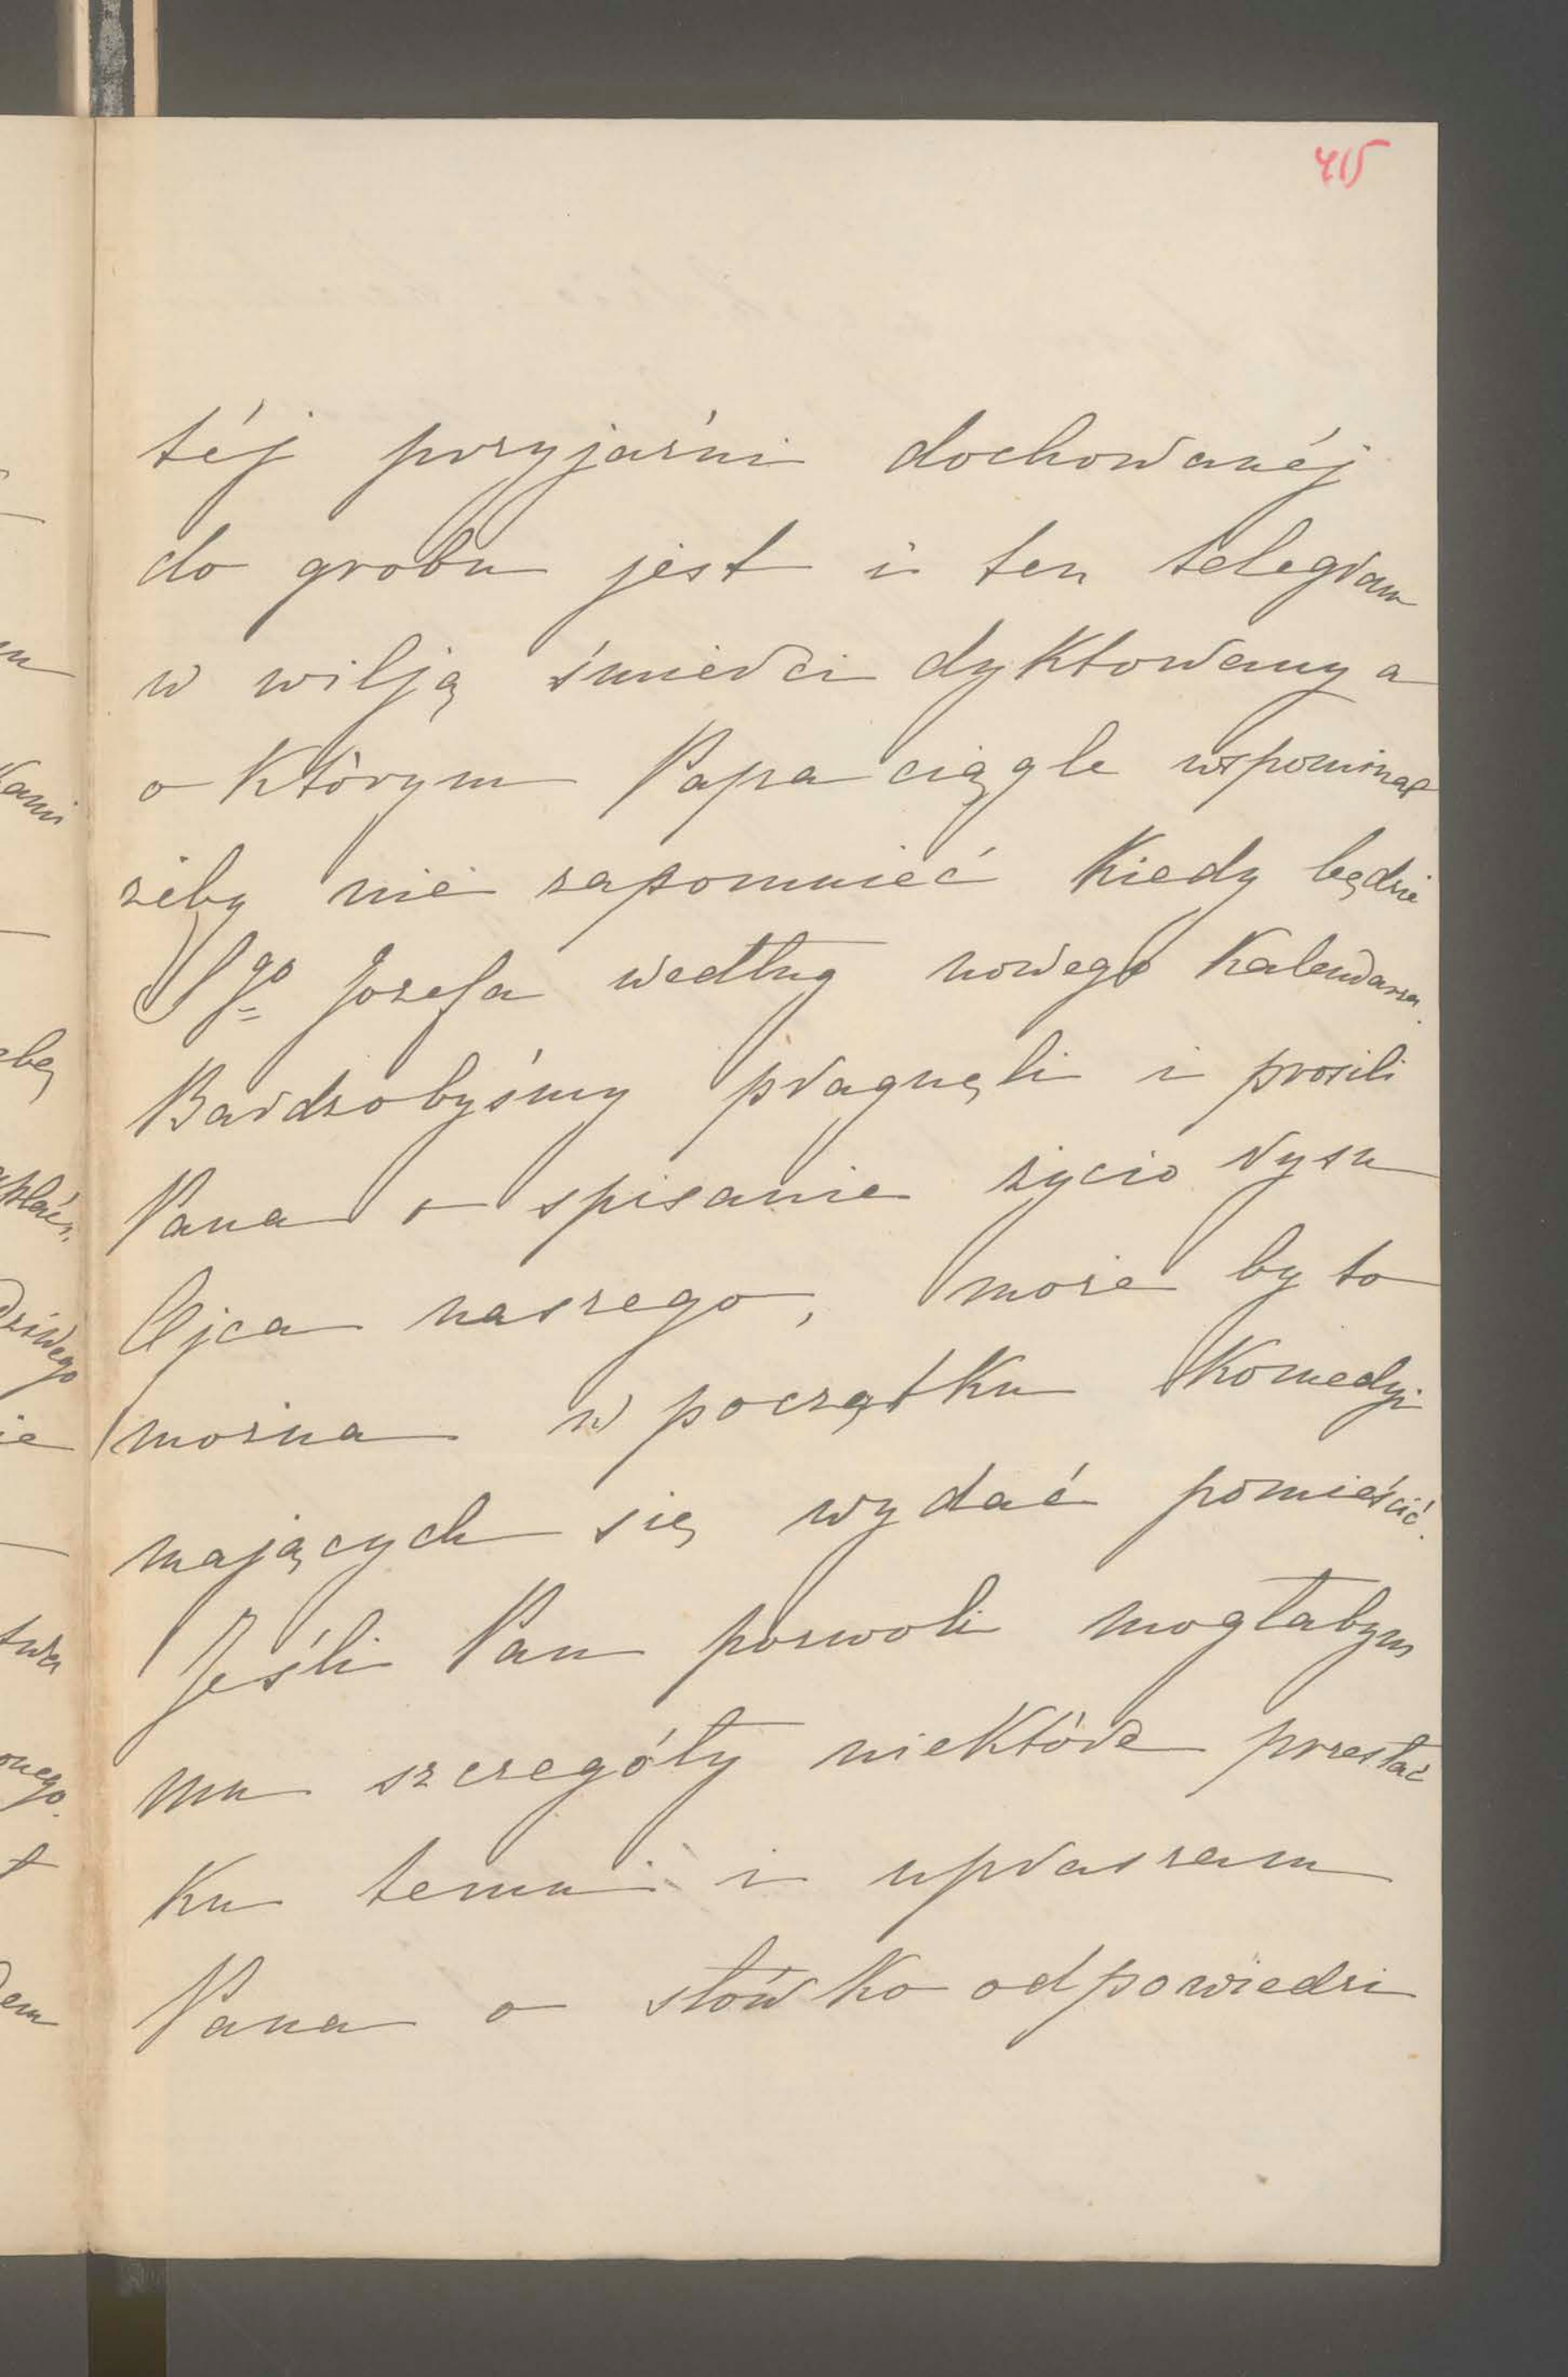 415
téj przyjaźni dochowanéj
do grobu jest i ten telegram
w wilją śmierci dyktowany a
o którym Papa ciągle wspominał
żeby nie zapomnieć kiedy będzie
Sgo Józefa według nowego kalendarza.
Bardzobyśmy pragnęli i prosili
Pana o spisanie życio rysu
Ojca naszego, może by to
można w początku komedyi
mających się wydać pomieścić.
Jeśli Pan pozwoli mogłabym
mu szczegóły niektóre przesłać
ku temu i upraszam
Pana o słówko odpowiedzi